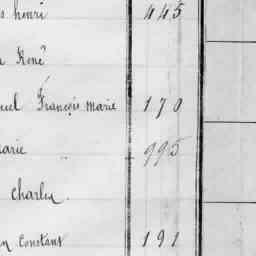 s henri 445
René
uel François marie 170
arie 995
Charles
n Constant 191